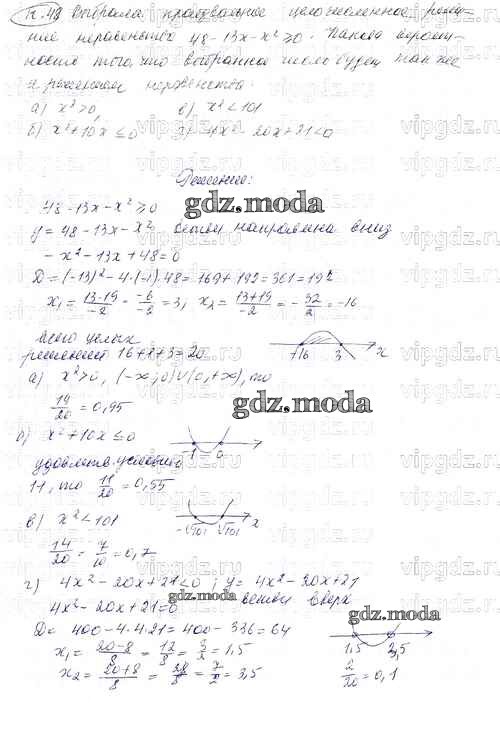 К.48 Выбрала произвольное целочисленное реше-
ние неравенства 48-13x-x²≥0. Какова вероят-
ность того, что выбранное число будет также
и решением неравенства:
а) x²>0, в) x²<101
б) x²+10x≤0 г) 4x²-20x+21<0
Решение:
48-13x-x²≥0
y=48-13x-x² ветви направлена вниз
-x²-13x+48=0
D=(-13)²-4·(-1)·48=169+192=361=19²
x₁=(13-19)/-2=-6/-2=3, x₂=(13+19)/-2=-32/2=-16
всего целых
решений 16+1+3=20
-16 3 x
а) x²>0, (-∞;0)∪(0,+∞), то
19/20=0,95
б) x²+10x≤0
удовлетв. условию
11, то 11/20=0,55
в) x²<101
-√101 √101 x
14/20=7/10=0,7
г) 4x²-20x+21<0; y=4x²-20x+21
4x²-20x+21=0 ветви вверх
D=400-4·4·21=400-336=64
x₁=(20-8)/8=12/8=3/2=1,5
1,5 3,5
x₂=(20+8)/8=28/8=7/2=3,5
2/20=0,1
gdz.moda
gdz.moda
gdz.moda
gdz.moda
vipgdz.ru